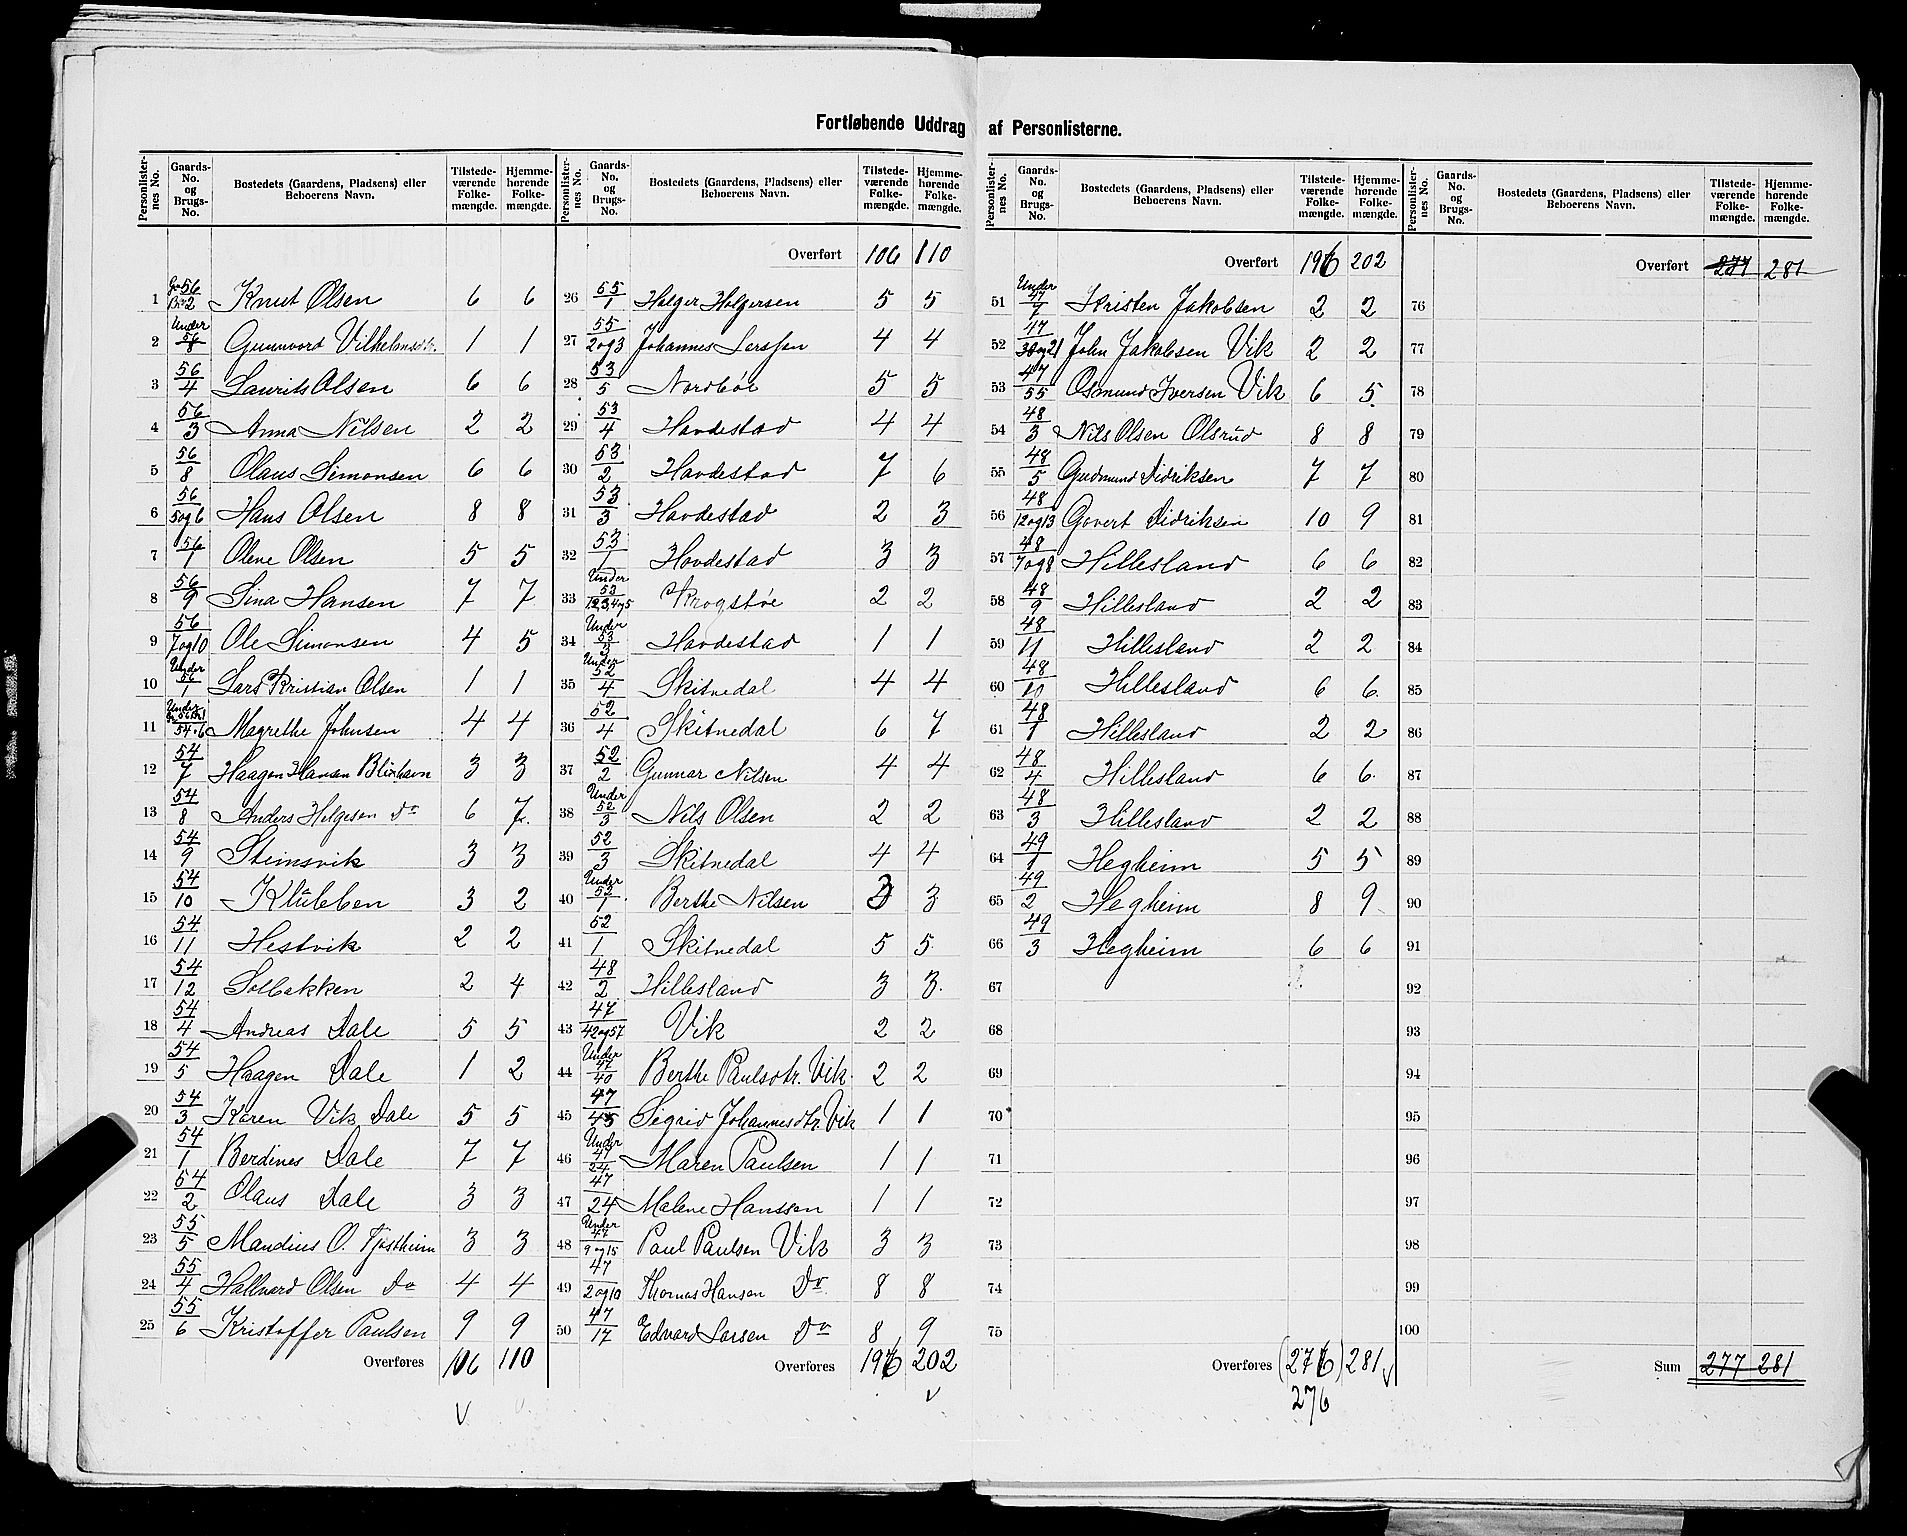 Fortløbende Uddrag af Personlisterne.
Personlisternes No. | Gaards-No. og Brugs-No. | Bostedets (Gaardens, Pladsens) eller Beboerens Navn. | Tilstedeværende Folkemængde. | Hjemmehørende Folkemængde.
1 | Gr 56 / Br 2 | Knut Olsen | 6 | 6
2 | Under 56/8 | Gunnvord Vilhelmsdtr. | 1 | 1
3 | 56/4 | Laurits Olsen | 6 | 6
4 | 56/3 | Anna Nilsen | 2 | 2
5 | 56/8 | Olaus Simonsen | 6 | 6
6 | 56/5og6 | Hans Olsen | 8 | 8
7 | 56/1 | Olene Olsen | 5 | 5
8 | 56/9 | Sina Hansen | 7 | 7
9 | 56/7og10 | Ole Simonsen | 4 | 5
10 | Under 56/1 | Lars Kristian Olsen | 1 | 1
11 | Under 54.6 | Magrethe Johnsen | 4 | 4
12 | 54/7 | Haagen Hansen Blixhavn | 3 | 3
13 | 54/8 | Anders Helgesen Do | 6 | 7.
14 | 54/9 | Steinsvik | 3 | 3
15 | 54/10 | Kluleben | 3 | 2
16 | 54/11 | Hestvik | 2 | 2
17 | 54/12 | Solbakken | 2 | 4
18 | 54/4 | Andreas Dale | 5 | 5
19 | 54/5 | Haagen Dale | 1 | 2
20 | 54/3 | Karen Vik Dale | 5 | 5
21 | 54/1 | Berdines Dale | 7 | 7
22 | 54/2 | Olaus Dale | 3 | 3
23 | 55/5 | Mandius O. Tjøstheim | 3 | 3
24 | 55/4 | Hallvard Olsen Do | 4 | 4
25 | 55/6 | Kristoffer Paulsen | 9 | 9
Overføres | 106 | 110
Personlisternes No. | Gaards-No. og Brugs-No. | Bostedets (Gaardens, Pladsens) eller Beboerens Navn. | Tilstedeværende Folkemængde. | Hjemmehørende Folkemængde.
Overført | 106 | 110
26 | 55/1 | Holger Holgersen | 5 | 5
27 | 55/2og3 | Johannes Larssen | 4 | 4
28 | 53/5 | Nordbøe | 5 | 5
29 | 53/4 | Hovdestad | 4 | 4
30 | 53/2 | Hovdestad | 7 | 6
31 | 53/3 | Hovdestad | 2 | 3
32 | 53/1 | Hovdestad | 3 | 3
33 | Under 53/1,2,3,4og5 | Krogstøe | 2 | 2
34 | Under 53/3 | Hovdestad | 1 | 1
35 | Under 52/4 | Skitnedal | 4 | 4
36 | 52/4 | Skitnedal | 6 | 7
37 | 52/2 | Gunnar Nilsen | 4 | 4
38 | Under 52/3 | Nils Olsen | 2 | 2
39 | 52/3 | Skitnedal | 4 | 4
40 | Under 52/1 | Berthe Nilsen | 3 | 3
41 | 52/1 | Skitnedal | 5 | 5
42 | 48/2 | Hillesland | 3 | 3.
43 | 47/42og57 | Vik | 2 | 2
44 | Under 47/40 | Berthe Paulsdtr. Vik | 2 | 2
45 | 47/45 | Sigrid Johannesdtr. Vik | 1 | 1
46 | Under 47/24 | Maren Paulsen | 1 | 1
47 | 47/24 | Malene Hanssen | 1 | 1
48 | Under 47/9og15 | Paul Paulsen Vik | 3 | 3
49 | 47/2og10 | Thomas Hansen Do. | 8 | 8
50 | 47/17 | Edvard Larsen Do | 8 | 9
Overføres | 196 | 202
Personlisternes No. | Gaards-No. og Brugs-No. | Bostedets (Gaardens, Pladsens) eller Beboerens Navn. | Tilstedeværende Folkemængde. | Hjemmehørende Folkemængde.
Overført | 196 | 202
51 | Under 47/7 | Kristen Jakobsen | 2 | 2
52 | 47/38og21 | John Jakobsen Vik | 2 | 2
53 | 47/55 | Osmund Iversen Vik | 6 | 5.
54 | 48/3 | Nils Olsen Olsrud | 8 | 8
55 | 48/5 | Gudmund Didriksen | 7 | 7
56 | 48/12og13 | Govert Didriksen | 10 | 9
57 | 48/7og8 | Hillesland | 6 | 6
58 | 48/9 | Hillesland | 2 | 2
59 | 48/11 | Hillesland | 2 | 2
60 | 48/10 | Hillesland | 6 | 6.
61 | 48/1 | Hillesland | 2 | 2
62 | 48/4 | Hillesland | 6 | 6.
63 | 48/3 | Hillesland | 2 | 2
64 | 49/1 | Hegheim | 5 | 5
65 | 49/2 | Hegheim | 8 | 9
66 | 49/3 | Hegheim | 6 | 6
67
68
69
70
71
72
73
74
75
Overføres | (276) | 281
276
Personlisternes No. | Gaards-No. og Brugs-No. | Bostedets (Gaardens, Pladsens) eller Beboerens Navn. | Tilstedeværende Folkemængde. | Hjemmehørende Folkemængde.
Overført | 277 | 281
76
77
78
79
80
81
82
83
84
85
86
87
88
89
90
91
92
93
94
95
96
97
98
99
100
Sum | 277 | 281